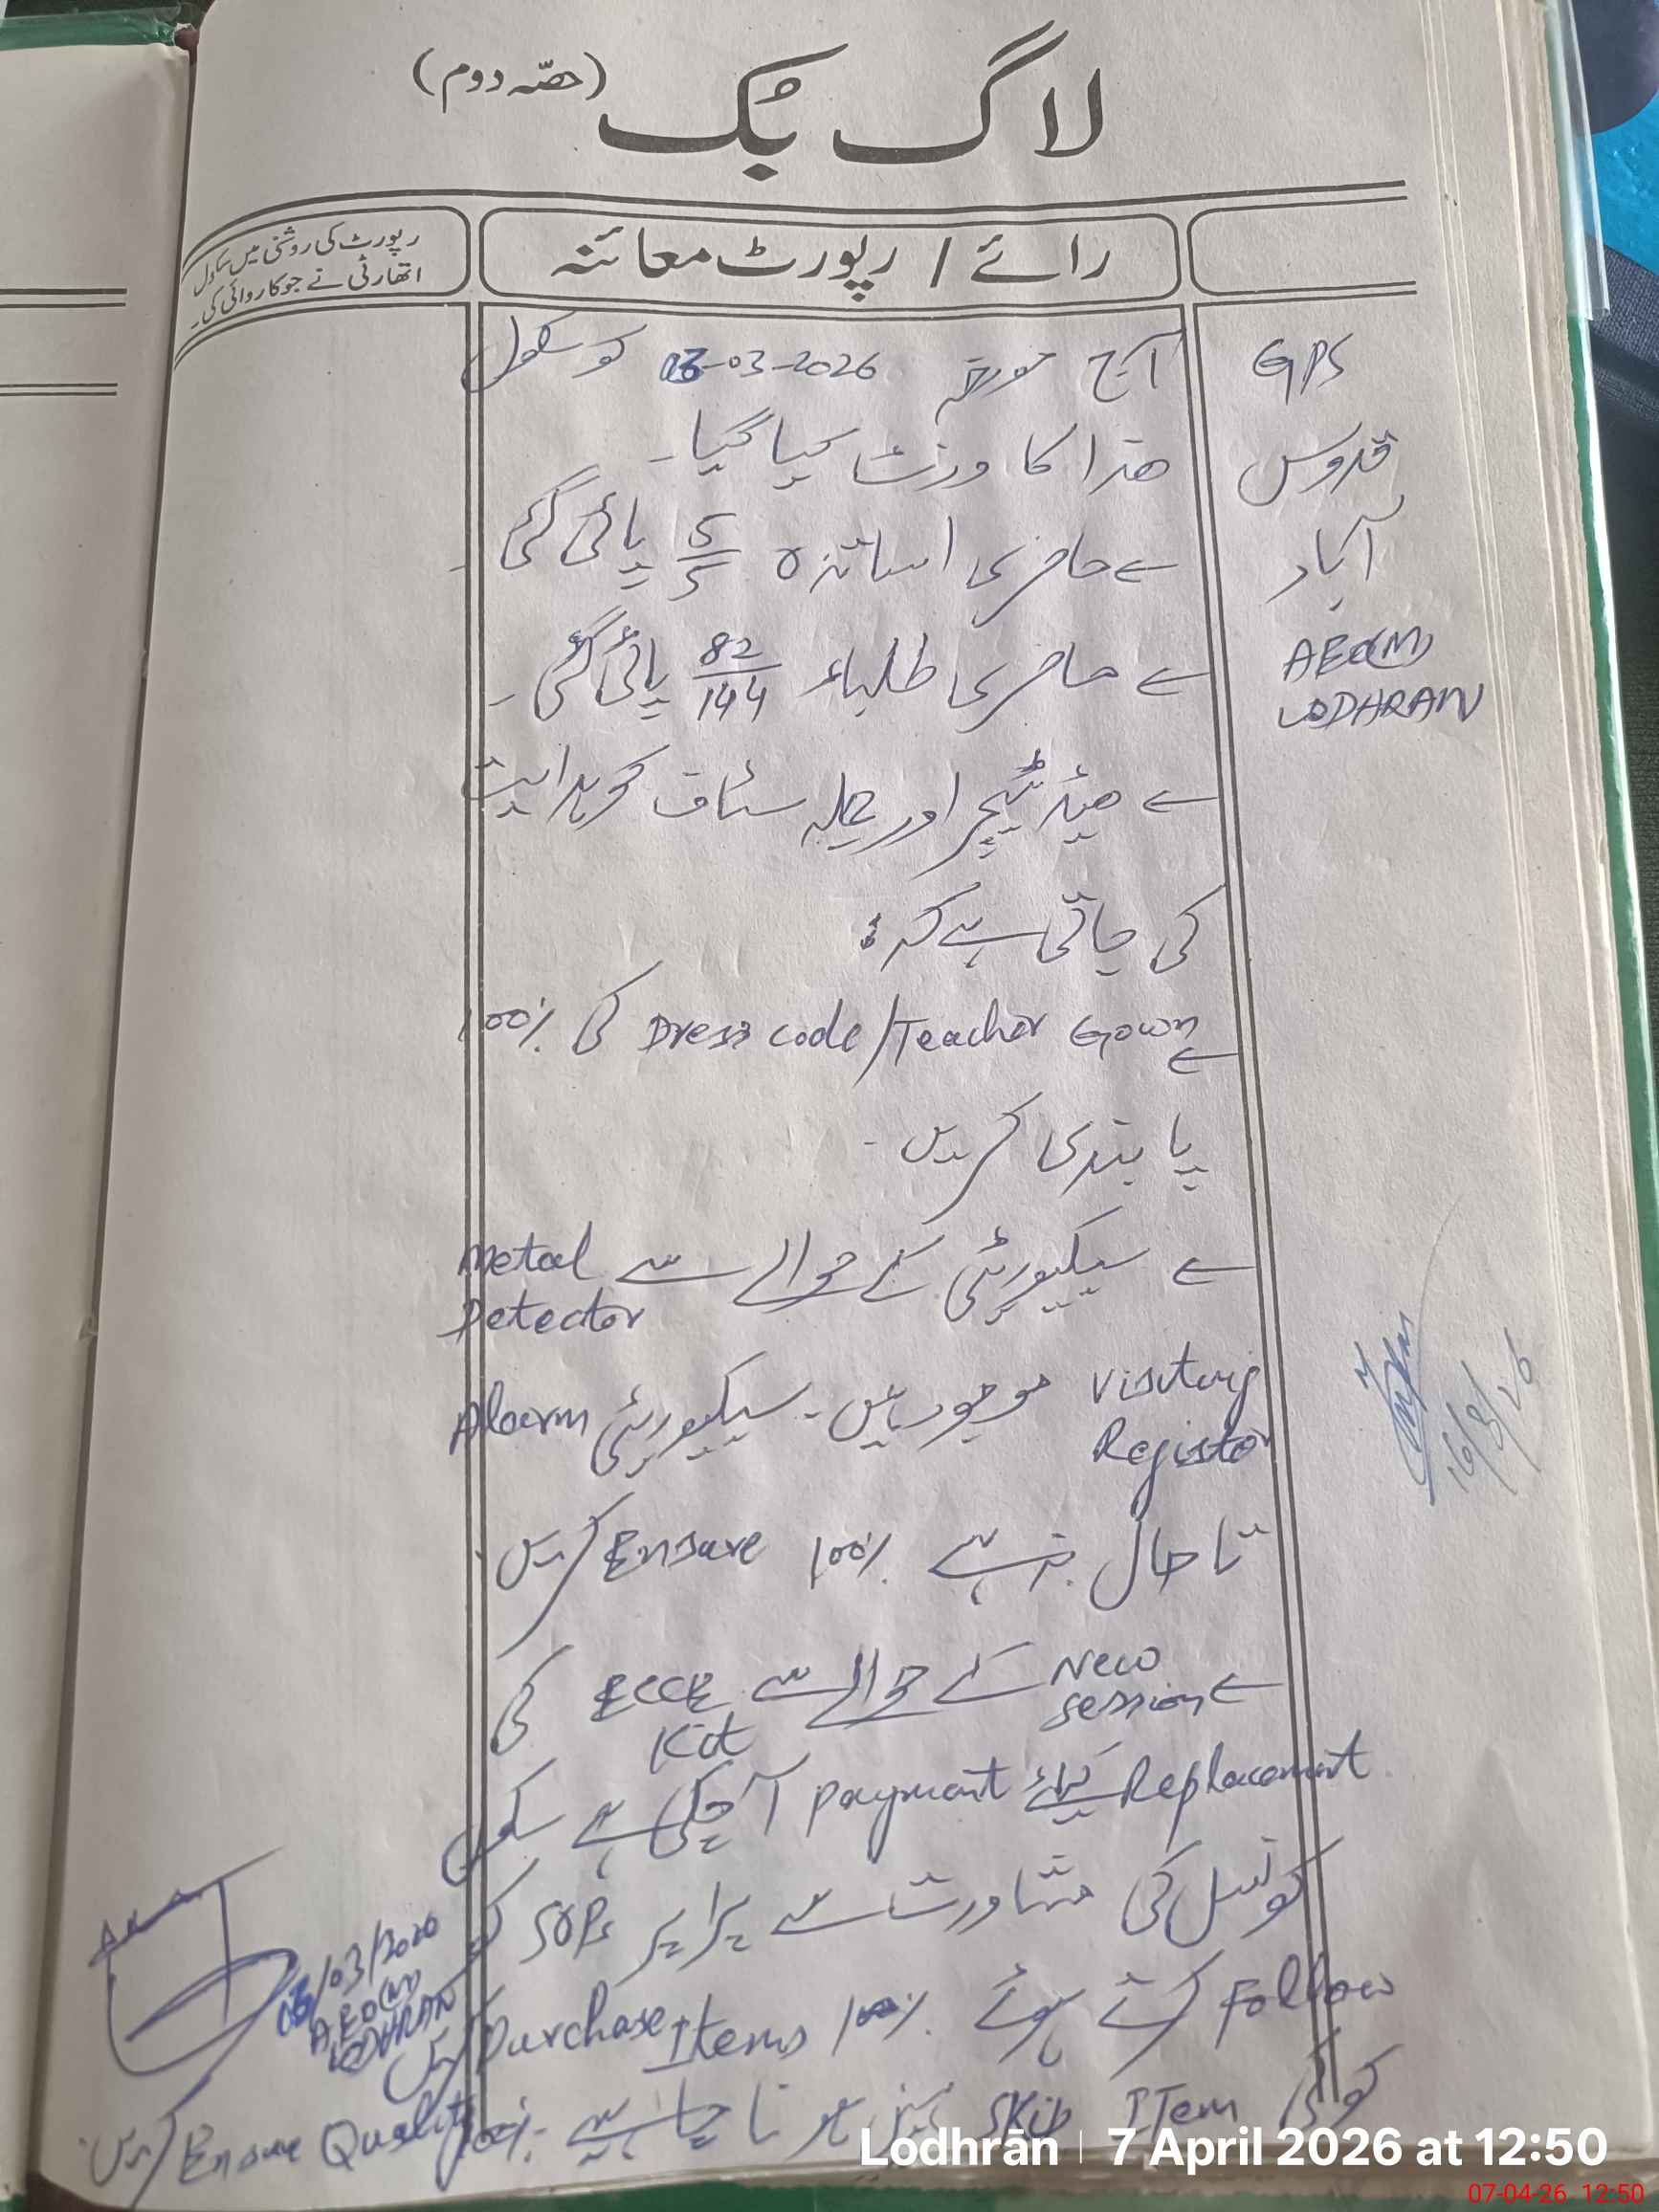 لاگ بُک (حصّہ دوم)
رائے / رپورٹ معائنہ
رپورٹ کی روشنی میں سکول
اتھارٹی نے جو کاروائی کی۔
GPS
قدوس
آباد
AEO(M)
LODHRAN
آج مورخہ 03-03-2026 کو سکول
ھذا کا وزٹ کیا گیا۔
حاضری اساتذہ 5/5 پائی گئی۔
حاضری طلباء 82/144 پائی گئی۔
ھیڈ ٹیچر اور جملہ سٹاف کو ہدایت
کی جاتی ہے کہ:
Dress code/Teacher Gown کی 100%
پابندی کریں۔
سیکیورٹی کے حوالے سے Metal Detector
Visiting Register موجود ہیں۔ سیکیورٹی Alarm
تا حال بند ہے 100% Ensure کریں۔
New session کے حوالے سے ECCE Kit کی
Replacement کیلئے Payment آ چکی ہے سکول
کونسل کی مشاورت سے SOPs کو
Follow کرتے ہوئے 100% Items Purchase کریں
کوئی Item Skip نہیں ہونا چاہیے۔ 100% Ensure Quality کریں۔
03/03/2026
A.E.O(M)
LODHRAN
16/3/26
Lodhrān | 7 April 2026 at 12:50
07-04-26 12:50